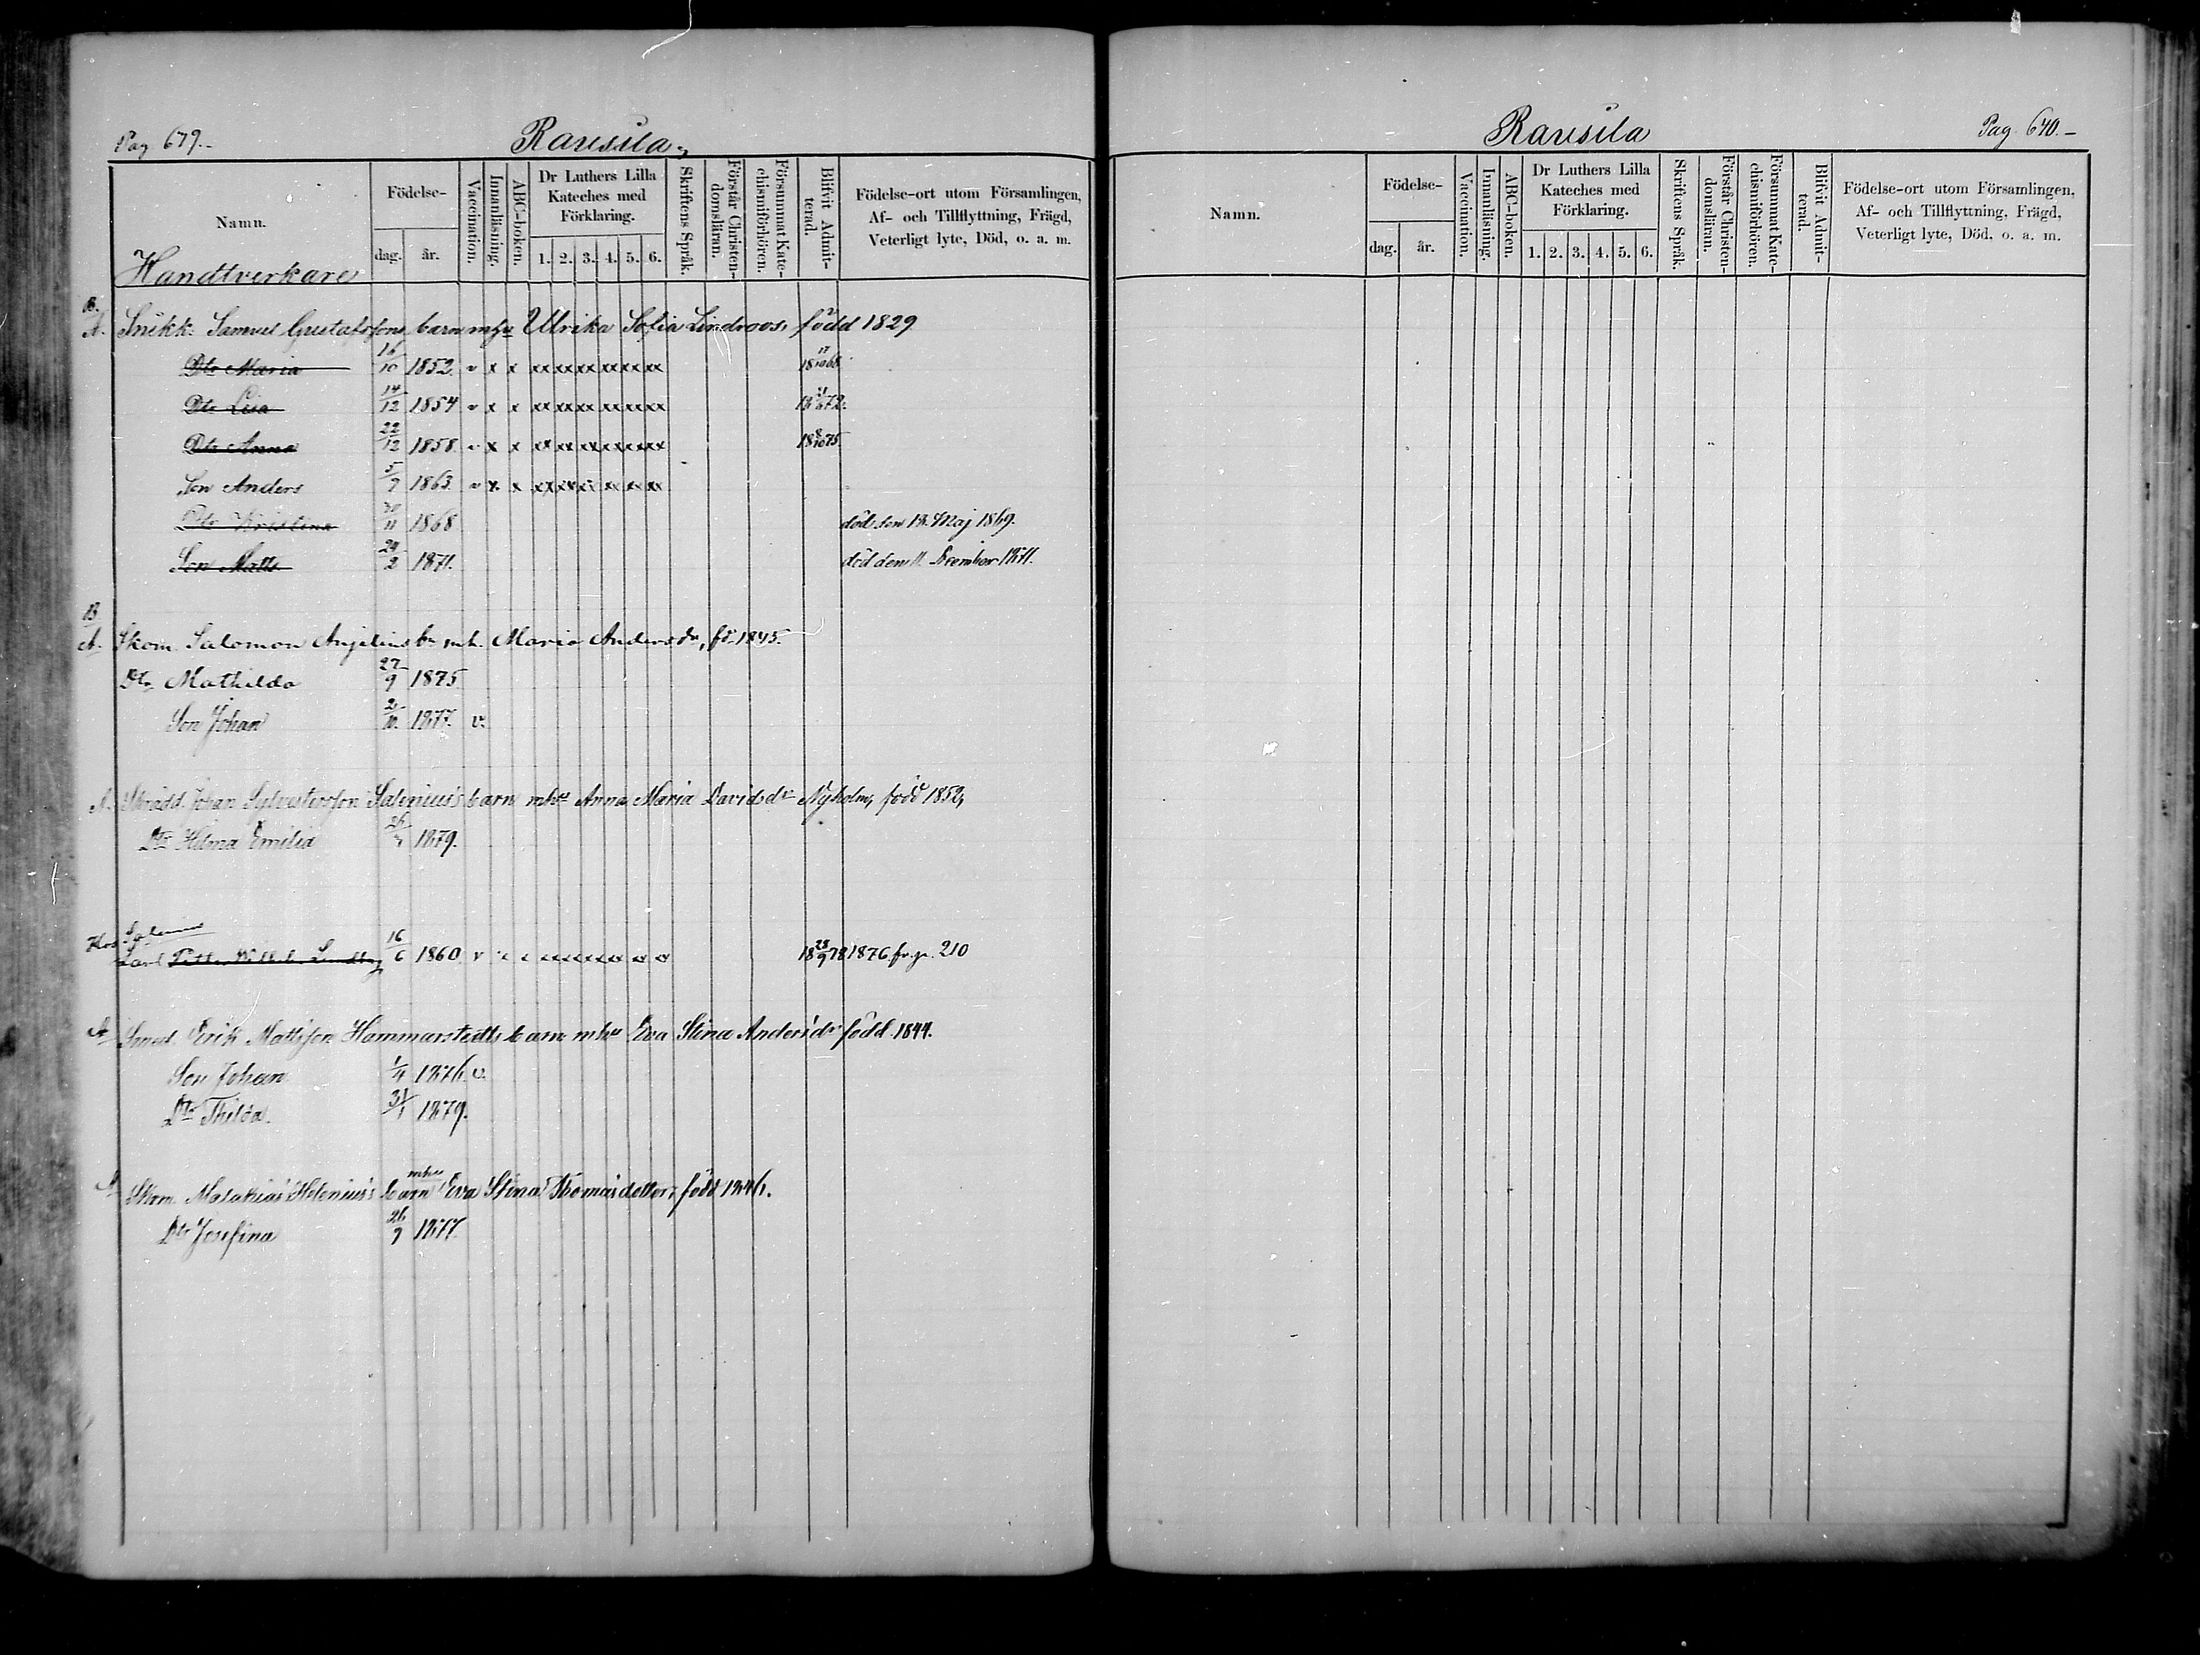 Pag 679.
Rausila
Namn.
Födelse-
dag.
år.
Vaccination.
Innanläsning.
ABC-boken.
Dr Luthers Lilla
Kateches med
Förklaring.
1. 2. 3. 4. 5. 6.
Skriftens Språk.
Förstår Christen-
domsläran.
Försummat Kate-
chismiförhören.
Blifvit Admit-
terad.
Födelse-ort utom Församlingen,
Af- och Tillflyttning, Frägd,
Veterligt lyte, Död, o. a. m.
Handtverkare
B.
A. Snikk. Samuel Gustafssons barn mhu Ulrika Sofia Lindroos, född 1829
Dtr Maria 16/10 1852. v x x xx xx xx xx xx xx 18 17/10 68
Dtr Lisa 14/12 1854 v x x xx xx xx xx xx xx
Dtr Anna 22/12 1858. v x x xx xx xx xx xx xx 18 8/10 75
Son Anders 5/7 1863 v x x xx xx xx xx xx xx
Dtr Kristina 30/11 1868 död den 13. Maj 1869.
Son Matts 24/2 1871. död den 11. December 1871.
B
A. Skom. Salomon Anjelins bn m.h. Maria Andersdr, fö. 1845.
Dtr Mathilda 27/9 1875
Son Johan 2/10. 1877. v.
A. Skrädd. Johan Sylvestersson Salenius's barn mhu Anna Maria Davidsdr Nyholm, född 1852,
Dtr Hilma Emilia 1879.
Hos Salenius
Carl 16/6 1860 v 18 28/9 78 1876 fr. p. 210
A. Smed. Erik Mattsson Hammarstedts barn mhu Eva Stina Andersdr född 1844.
Son Johan 1/4 1876. v.
Dtr Thilda. 31/1 1879.
mhu
A Skom. Malakias Helenius's barn Eva Stina Thomasdotter, född 1846.
Dtr Josefina 26/9 1877.
Rausila
Pag. 640.
Namn.
Födelse-
dag.
år.
Vaccination.
Innanläsning.
ABC-boken.
Dr Luthers Lilla
Kateches med
Förklaring.
1. 2. 3. 4. 5. 6.
Skriftens Språk.
Förstår Christen-
domsläran.
Försummat Kate-
chismiförhören.
Blifvit Admit-
terad.
Födelse-ort utom Församlingen,
Af- och Tillflyttning, Frägd,
Veterligt lyte, Död, o. a. m.